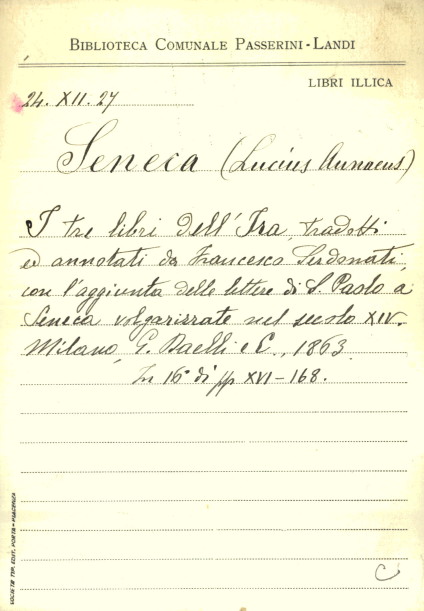 BIBLIOTECA COMUNALE PASSERINI-LANDI
LIBRI ILLICA
24. XII. 27
Seneca (Lucius Annaeus)
I tre libri dell'Ira, tradotti
ed annotati da Francesco Serdonati,
con l'aggiunta delle lettere di S. Paolo a
Seneca volgarizzate nel secolo XIV.
Milano, G. Daelli e C., 1863.
In 16° di pp XVI-168.
SOCIETÀ TIP. EDIT. PORTA-PIACENZA
C